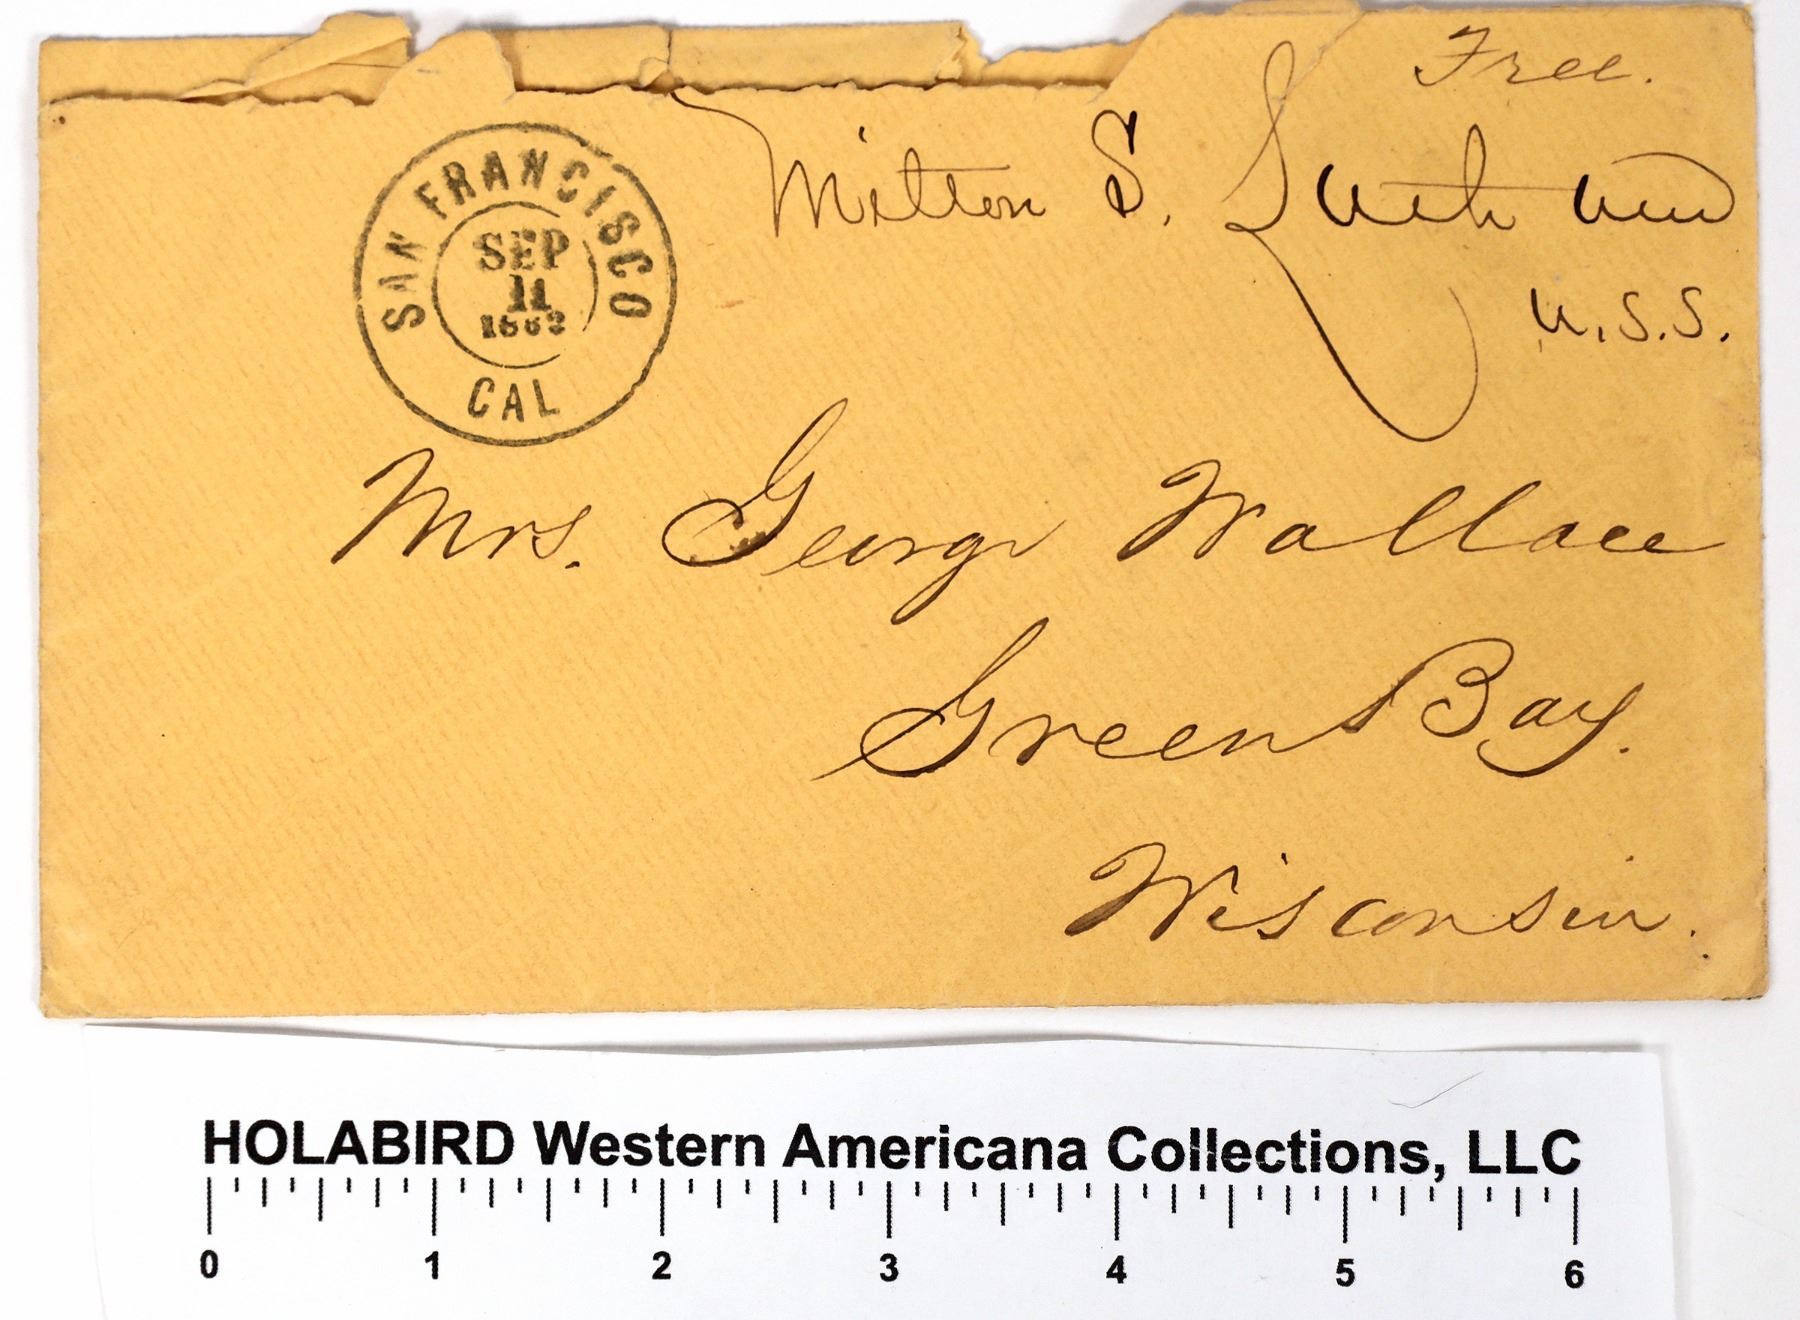 Free.
Milton S. Latham
U.S.S.
SAN FRANCISCO
SEP
11
1862
CAL
Mrs. George Wallace
Green Bay.
Wisconsin.
HOLABIRD Western Americana Collections, LLC
0 1 2 3 4 5 6